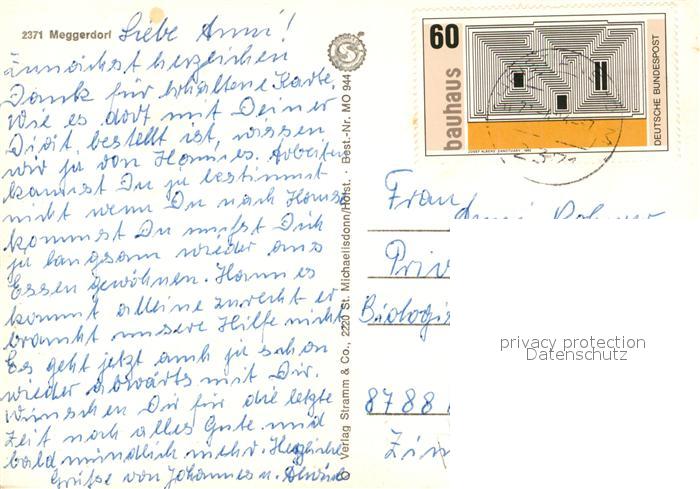 2371 Meggerdorf
Liebe Anni!
Zunächst herzlichen
Dank für erhaltene Karte.
Wie es dort mit Deiner
Diät bestellt ist, wissen
wir ja von Hannes. Arbeiten
kannst Du ja bestimmt
nicht wenn Du nach Hause
kommst Du mußt Dich
ja langsam wieder ans
Essen gewöhnen. Hannes
kommt alleine zurecht er
braucht unsere Hilfe nicht
Es geht jetzt auch ja schon
wieder abwärts mit Dir.
Wünschen Dir für die letzte
Zeit noch alles Gute und
bald mündlich mehr. Herzliche
Grüße von Johannes u.
© Verlag Stramm & Co., 2220 St. Michaelisdonn/Holst. · Best.-Nr. MO 944
60
bauhaus
DEUTSCHE BUNDESPOST
JOSEF ALBERS SANCTUARY 1942
Frau
Priv
Biologis
8788
Zim
privacy protection
Datenschutz